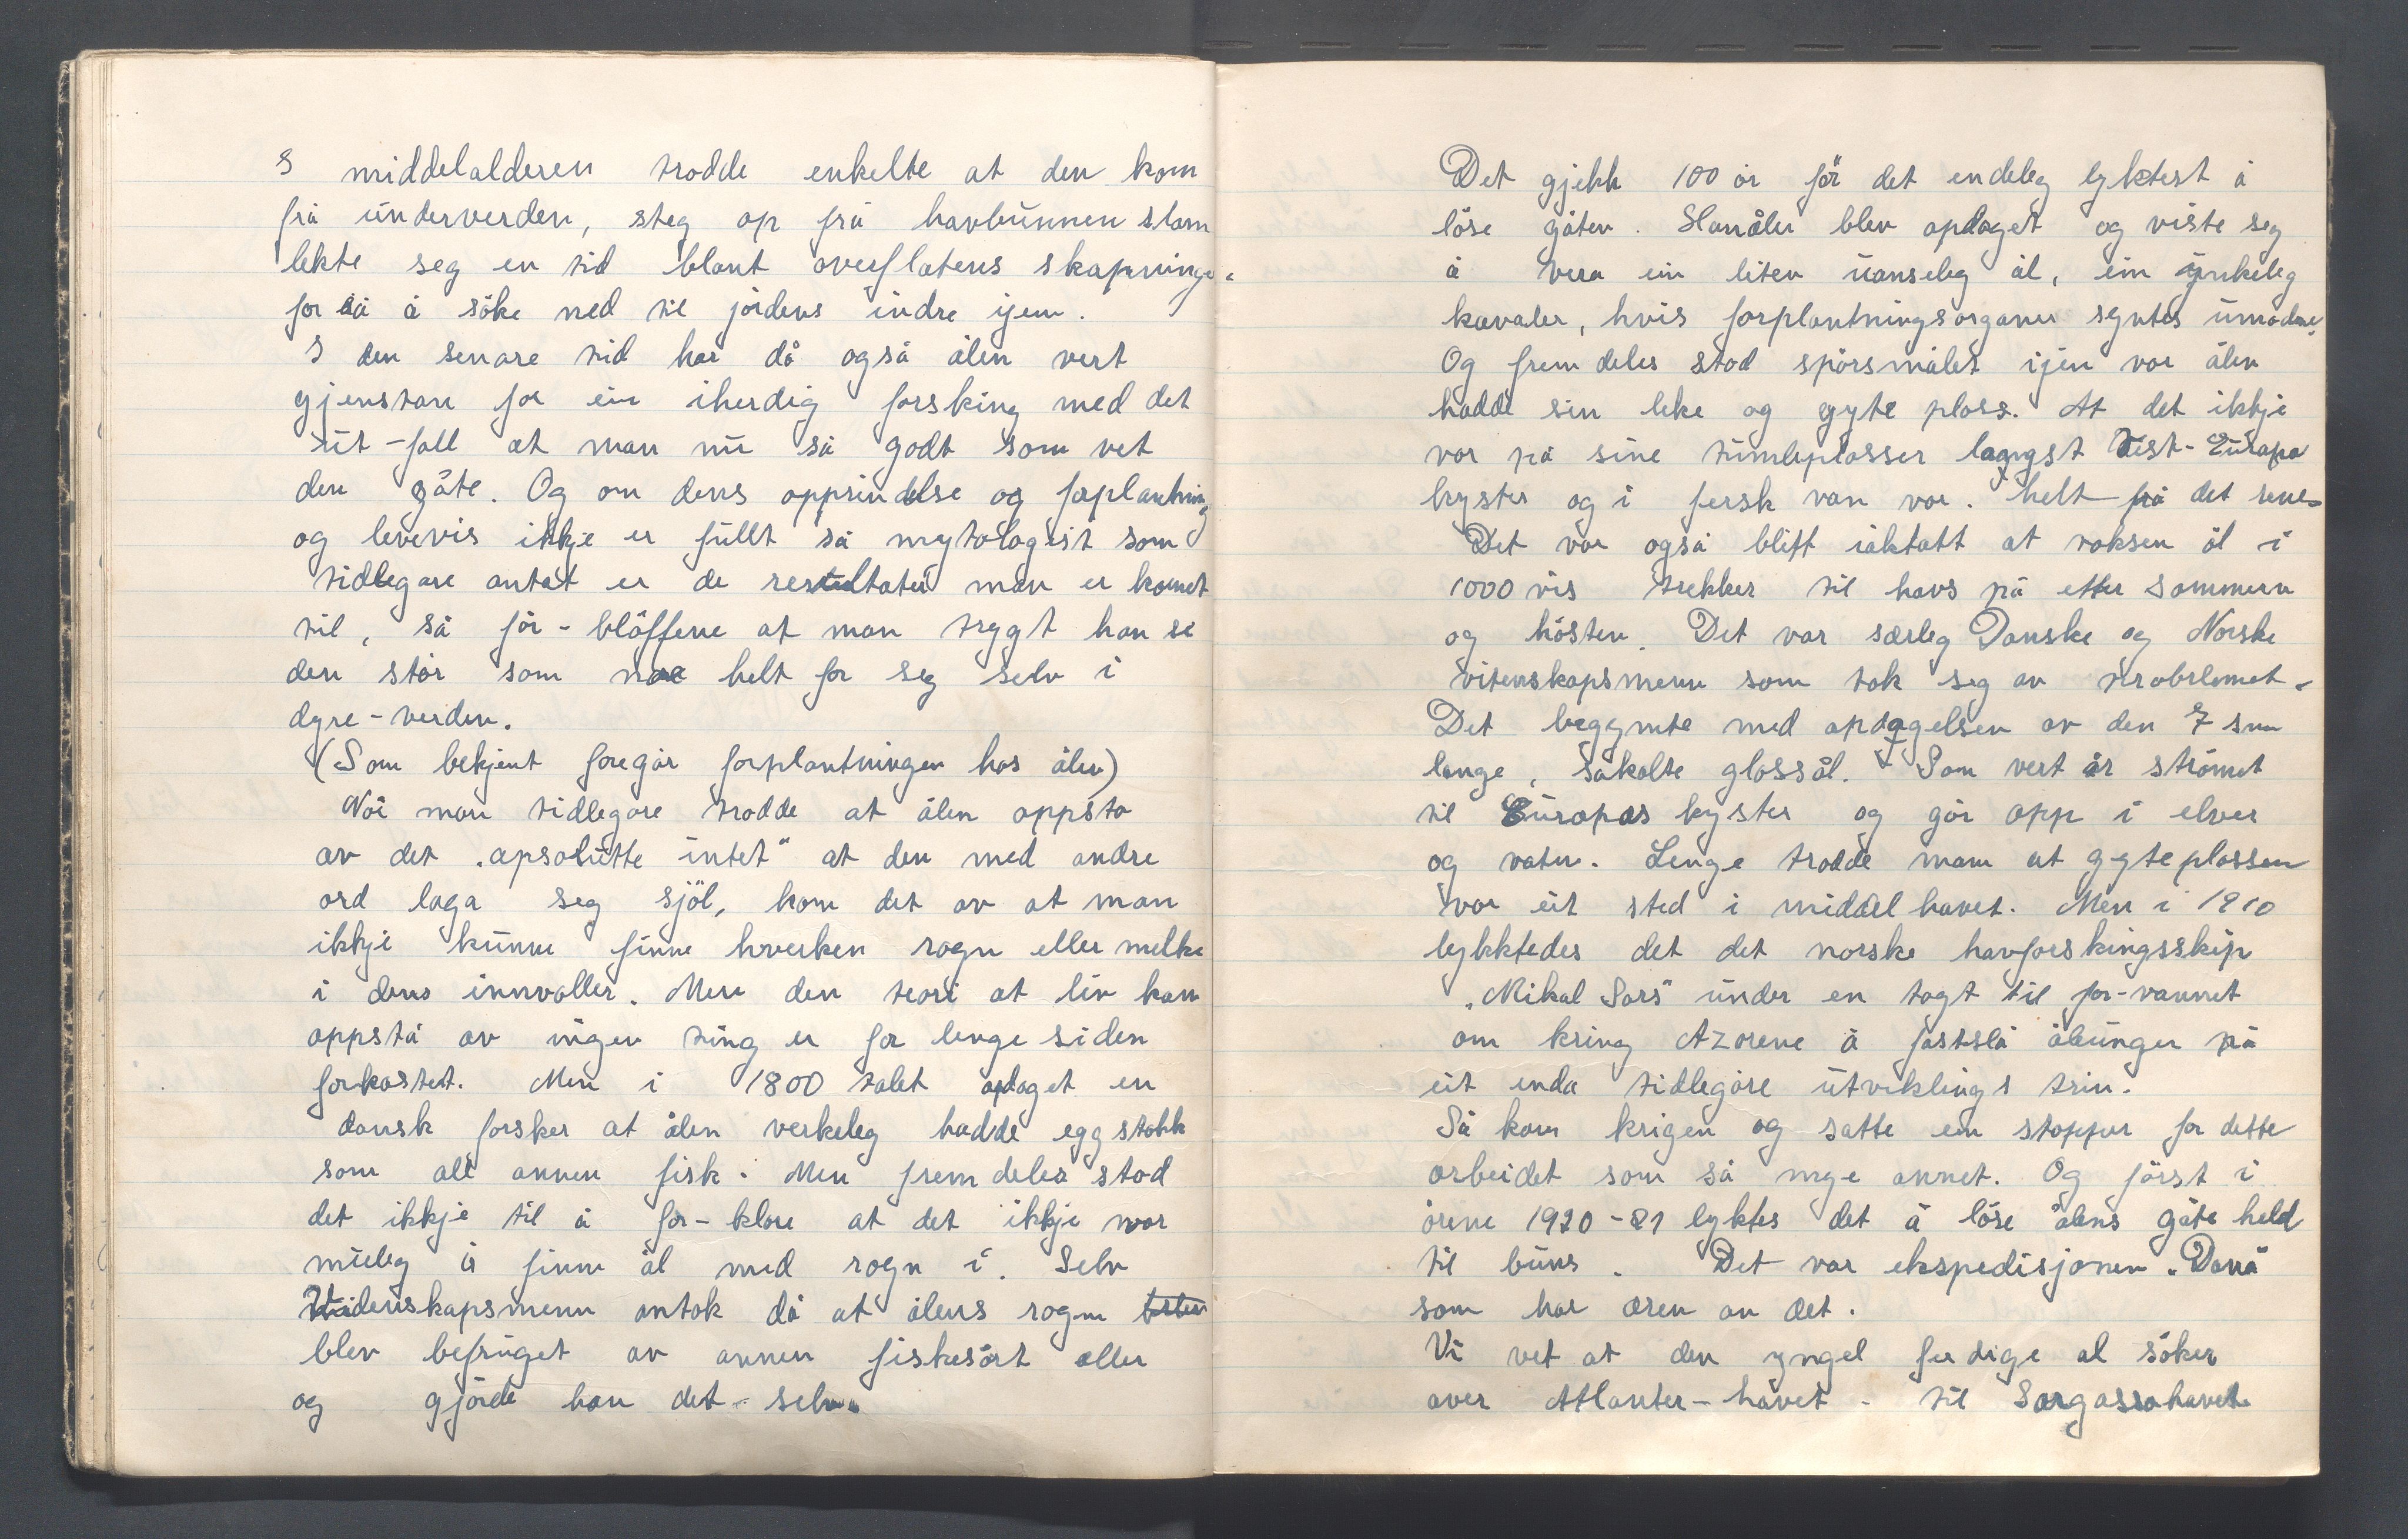 I middelalderen trodde enkelte at den kom
frå underverden, steg op frå havbunnen slam
lekte seg en tid blant overflatens skapninge.
for så å söke ned til jordens indre igjen.
I den senare tid har då også ålen vert
gjenstan for ein iherdig forsking med det
ut-fall at man nu så godt som vet
den gåte. Og om dens opprindelse og forplantning
og levevis ikkje er fullt så mytologist som
tidlegare antat er de resultater man er komet
til, så för-blöffene at man trygt kan se
den står som noe helt for seg selv i
dyre-verden.
(Som bekjent foregår forplantningen hos ålen)
Når man tidlegare trodde at ålen oppsto
av det „apsolutte intet" at den med andre
ord laga seg sjöl, kom det av at man
ikkje kunne finne hverken rogn eller melke
i dens innvoller. Men den teori at liv kan
oppstå av ingen ting er for lenge siden
forkastet. Men i 1800 talet opdaget en
dansk forsker at ålen verkeleg hadde eggstokk
som all annen fisk. Men fremdeles stod
det ikkje til å for-klare at det ikkje var
muleg å finne ål med rogn i. Selv
Videnskapsmenn antok då at ålens rogn
blev befruget av annen fiskesort eller
og gjörde han det selv.
Det gjekk 100 år för det endeleg lyktest å
löse gåten. Hanålen blev opdaget og viste seg
å vera ein liten uanseleg ål, ein ynkeleg
kavaler, hvis forplantningsorganer syntes umodne.
Og fremdeles stod spörsmålet igjen vor ålen
hadde sin leke og gyte plass. At det ikkje
var på sine tumleplasser langst Vest-Europa
kyster og i fersk van var. helt på det rene.
Det var også blitt iaktatt at voksen ål i
1000 vis trekker til havs på etter sommern
og hösten. Det var særleg Danske og Norske
vitenskapsmenn som tok seg av problemet.
Det begynte med opdagelsen av den 7 sm
lange, såkalte glassål. Som vert år strömet
til Europas kyster og går opp i elver
og vatn. Lenge trodde man at gyteplassen
var eit sted i middel havet. Men i 1910
lykktedes det det norske havforskingsskip
„Mikal Sars" under en togt til far-vannet
om kring Azorene å fastslå ålunger på
eit enda tidlegare utviklings trin.
Så kom krigen og satte ein stopper for dette
arbeidet som så mye annet. Og först i
årene 1920-21 lyktes det å löse ålens gåte held
til buns. Det var ekspedisjonen „Dana"
som har æren av det.
Vi vet at den yngel ferdige ål söker
over Atlanter-havet - til Sargassohavet.